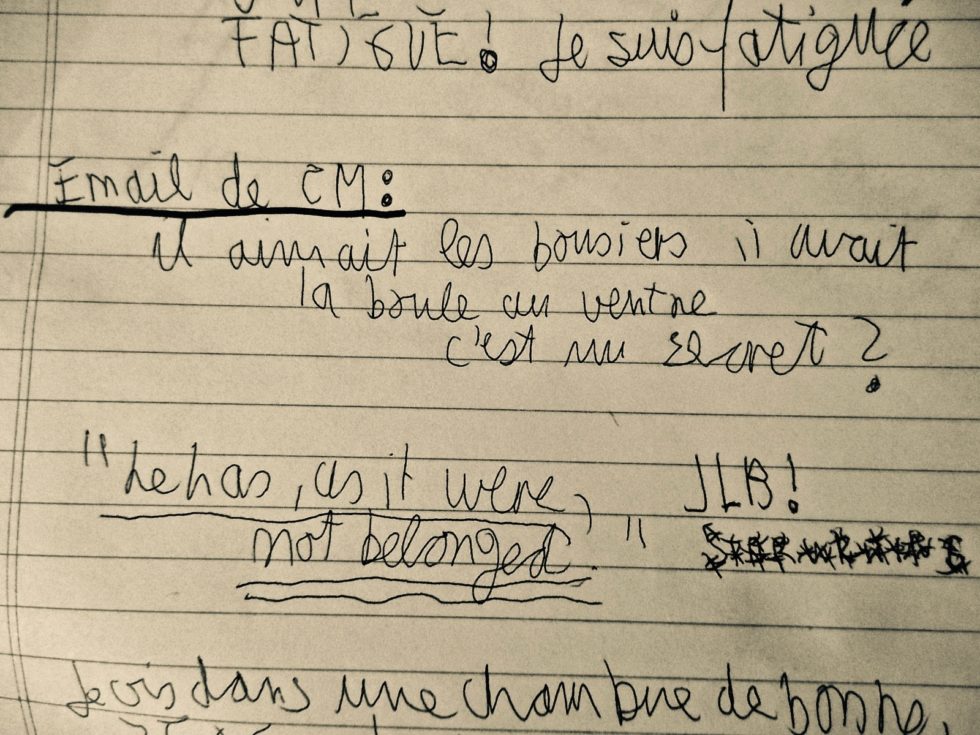 FATIGUE! Je suis fatiguée
Email de CM:
il aimait les bousiers il avait
la boule au ventre
c'est un secret?
"he has, as it were, JLB!
not belonged."
Je vis dans une chambre de bonne,